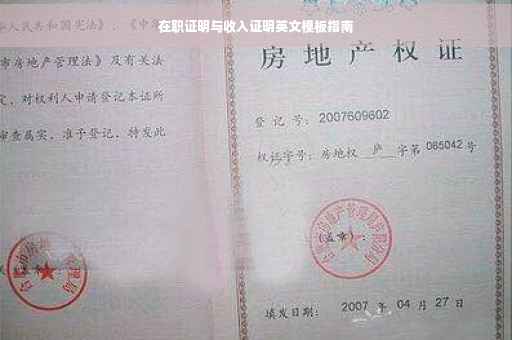 在职证明与收入证明英文模板指南
人民共和国宪法》、《中
市房地产管理法》及有关法
定，对权利人申请登记本证所
审查属实，准予登记，特发此
房地产权证
登记号：2007609602
权证字号：房地权 庐 字第 085042 号
(盖章)：
填发日期：2007 年 04 月 27 日